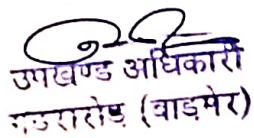 उपखण्ड अधिकारी
गडरारोड (बाड़मेर)